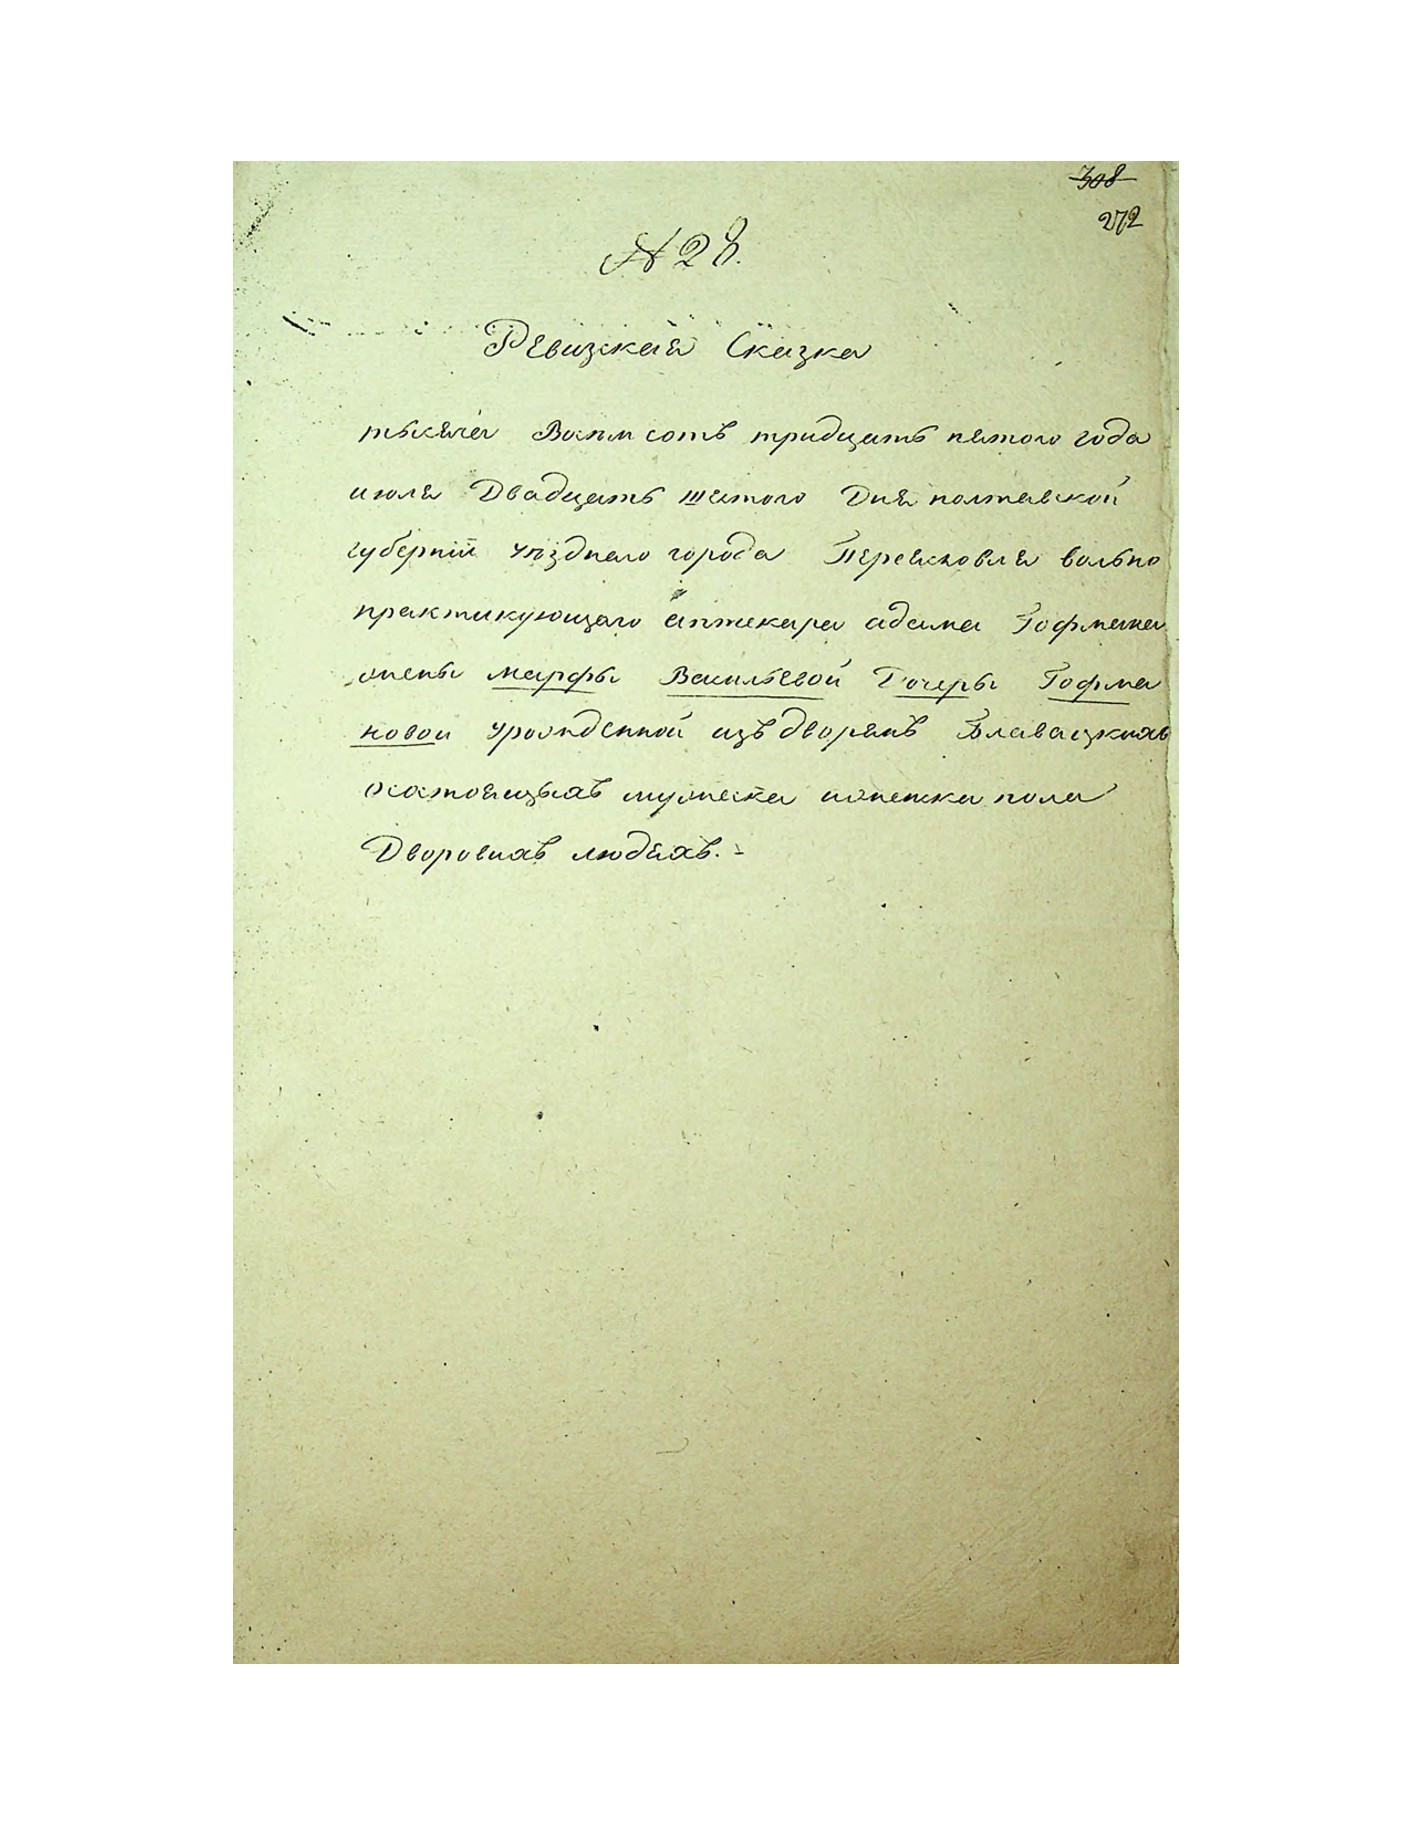 308
272
№ 28.
Ревизская Сказка
тысяча Восемсотъ тридцать пятого года
июля Двадцать шестого Дня полтавской
губернiй уѣзднаго города Переясловля вольно
практикующаго аптекара адама Гофмана
жены марфы Васильевой Дочеры Гофма
новой урожденной изъ дворянъ Блавацкихъ
осостоящыхъ мужеска иженска пола
Дворовихъ людяхъ.